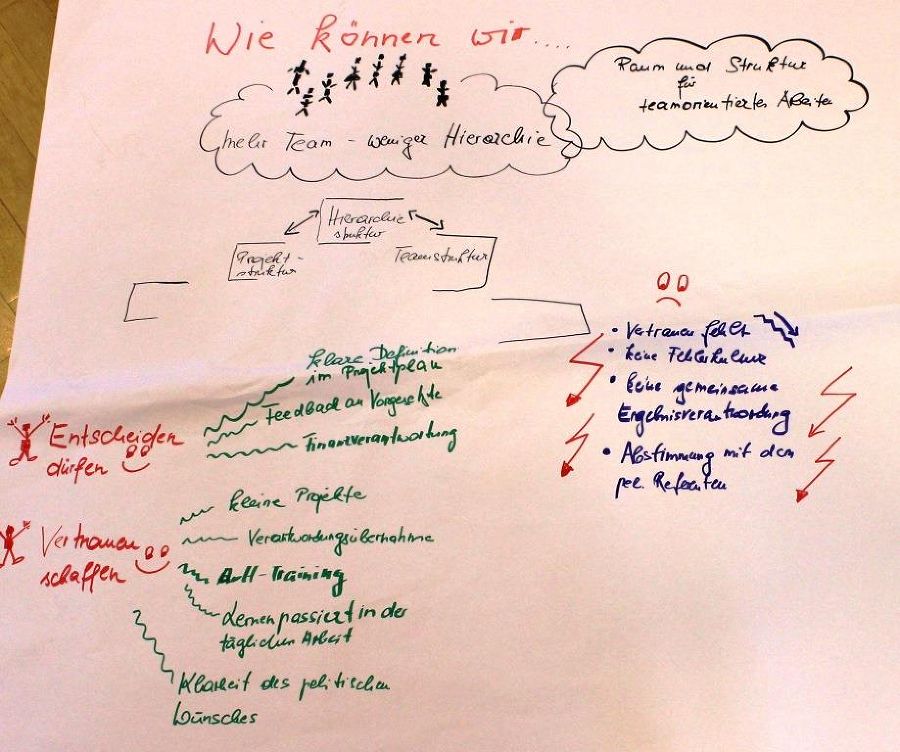 Wie können wir....
Raum und Struktur
für
teamorientiertes Arbeiten
mehr Team - weniger Hierarchie
Hierarchie
struktur
Projekt-
struktur
Teamstruktur
• Vertrauen fehlt
• keine Fehlerkultur
• keine gemeinsame
Ergebnisverantwordung
• Abstimmung mit dem
pol. Referenten
klare Definition
im Projektplan
Feedback an Vorgesetzte
Finanzverantwortung
Entscheiden
dürfen
kleine Projekte
Verantwordungsübernahme
Vertrauen
schaffen
A-H-Training
Lernen passiert in der
täglichen Arbeit
Klarheit des politischen
Wunsches